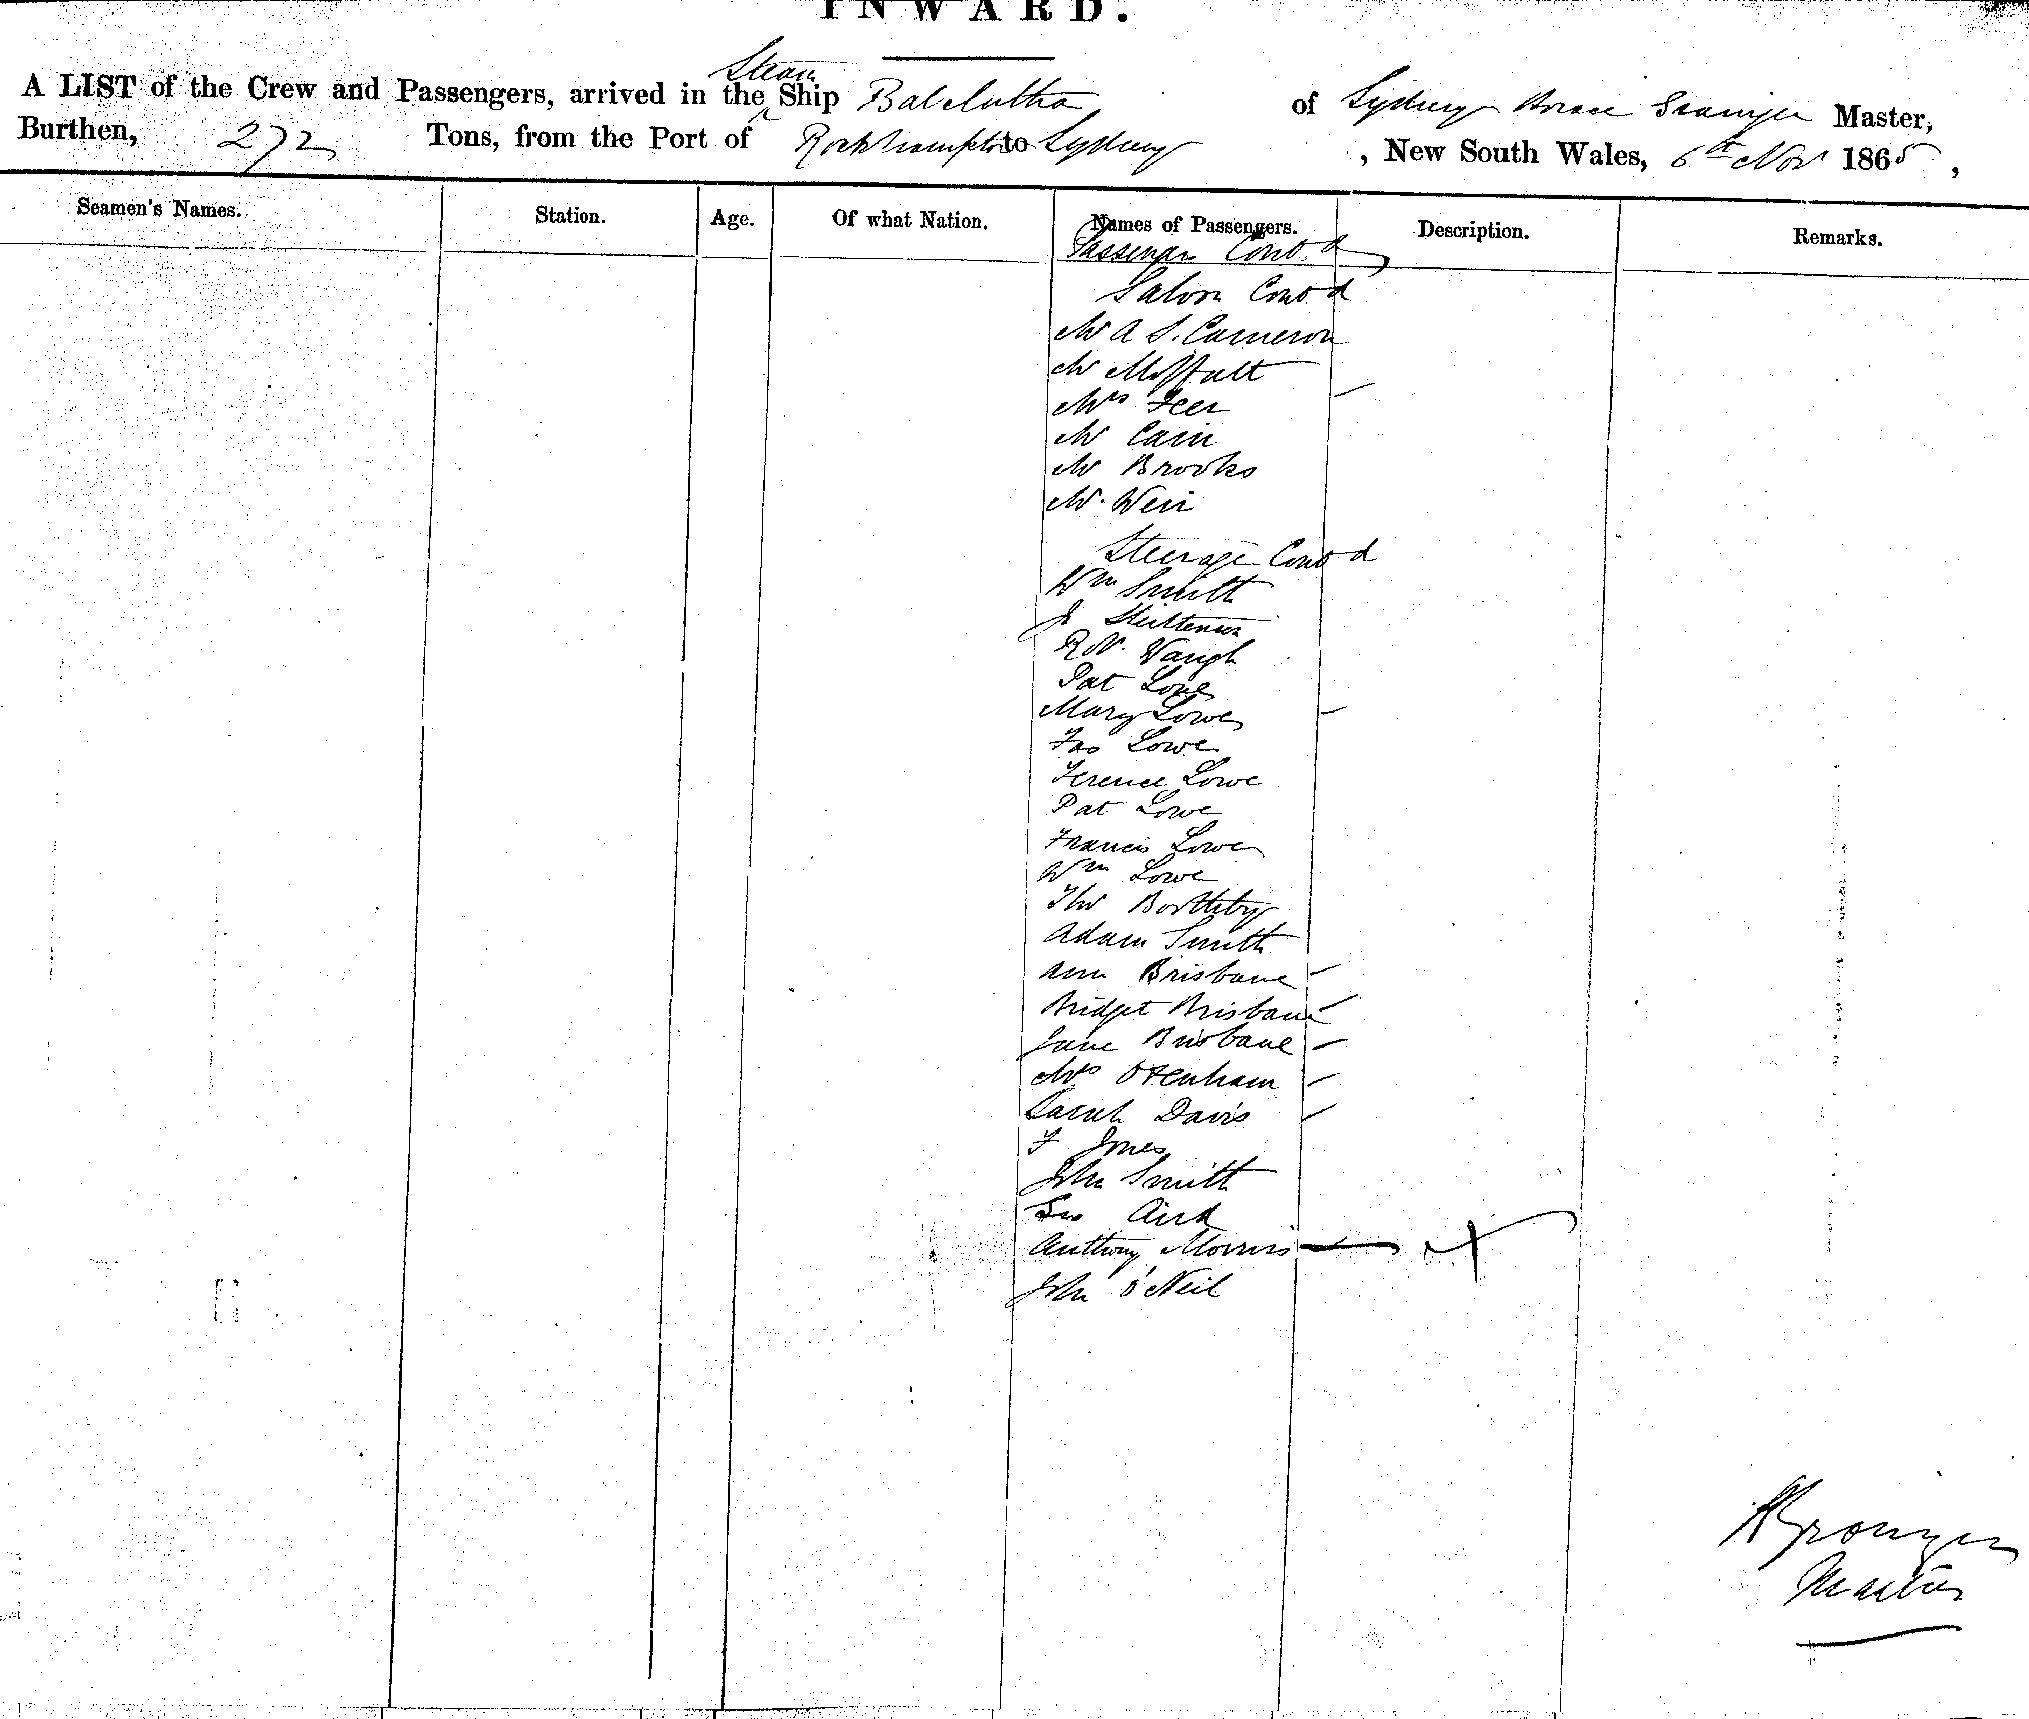 INWARD.
A LIST of the Crew and Passengers, arrived in the Steam Ship Balclutha of Sydney Grainger Master,
Burthen, 272 Tons, from the Port of Rockhampton to Sydney, New South Wales, 6th Nov 1865,
Seamen's Names. Station. Age. Of what Nation. Names of Passengers. Description. Remarks.
Passengers Contd
Saloon Contd
Mr A S. Cameron
Mr Moffatt
Mrs Feer
Mr Cain
Mr Brooks
Mr. Weir
Steerage Contd
Wm Smith
J
R W. Waugh
Pat Lowe
Mary Lowe
Jas Lowe
Terence Lowe
Pat Lowe
Francis Lowe
Wm Lowe
Thos Boothby
Adam Smith
Ann Brisbane
Bridget Brisbane
Jane Brisbane
Mrs Otenham
Sarah Davis
F Jones
John Smith
Geo Aird
Anthony Morris
John O'Neil
H Grainger
Master